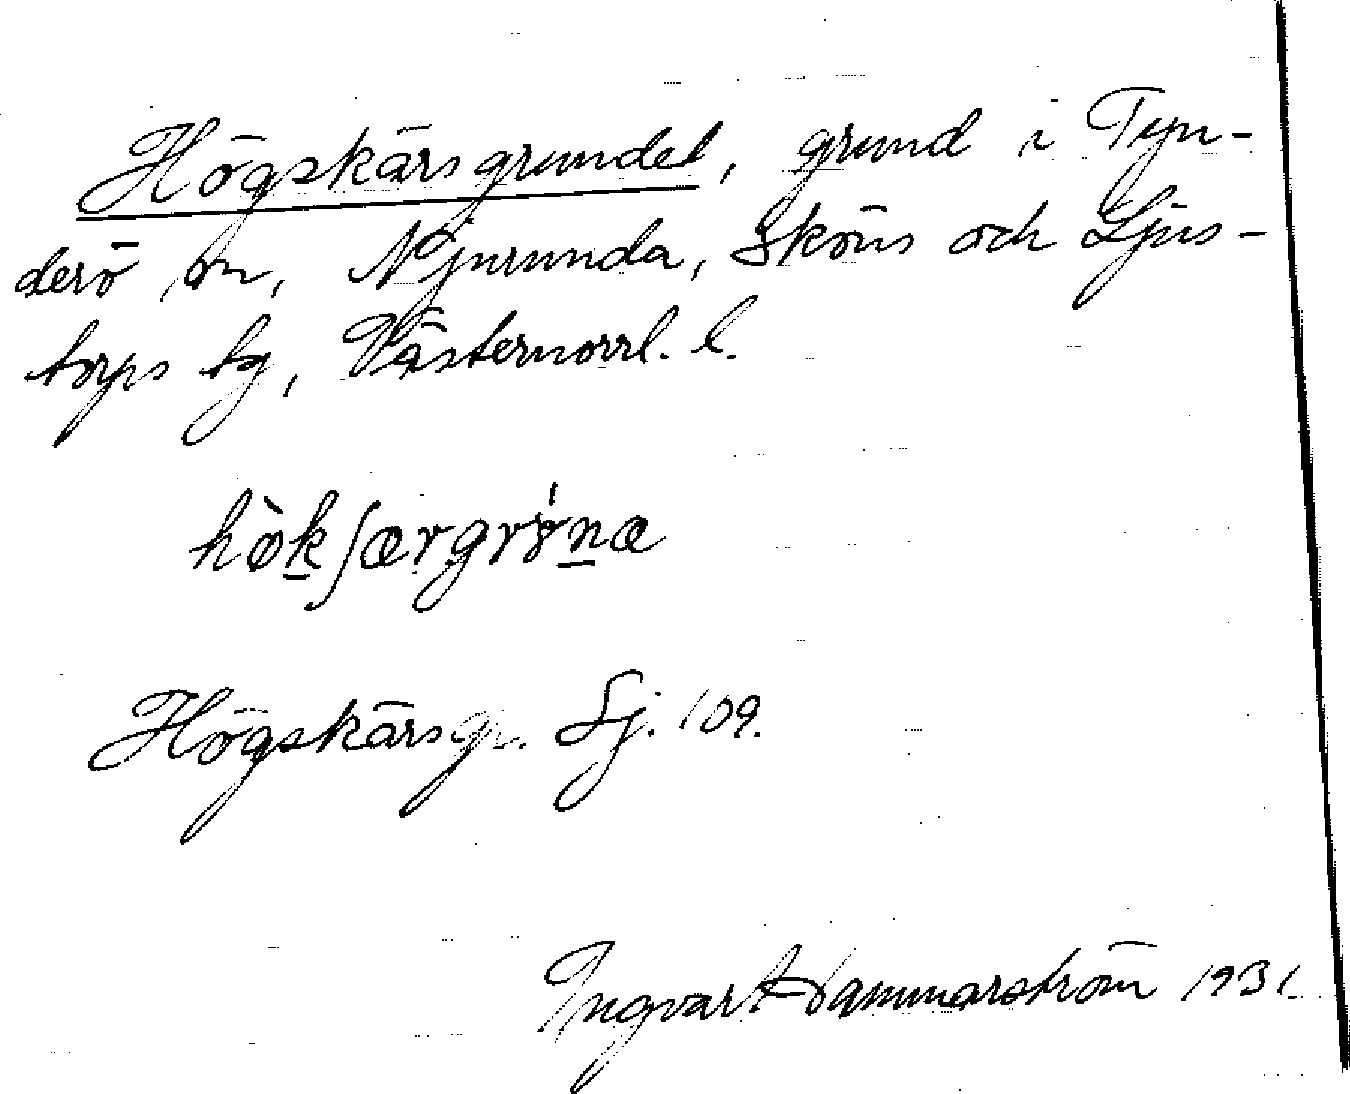 Högskärsgrundet, grund i Tyn-
derö sn, Njurunda, Sköns och Ljus-
torps tg, Västernorrl. l.
hòk̠ʃærgrǿn̠æ
Högskärsgr. Sj. 109.
Ingvar Hammarström 1931.